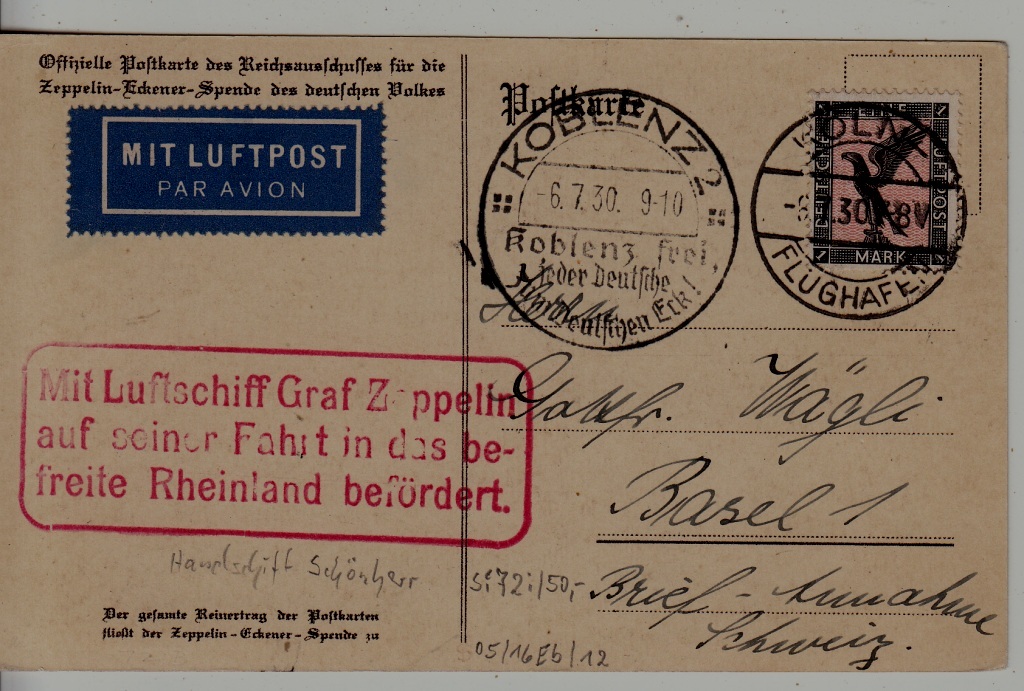 Offizielle Postkarte des Reichsausschusses für die
Zeppelin-Eckener-Spende des deutschen Volkes
MIT LUFTPOST
PAR AVION
Postkarte
KOBLENZ 2
-6.7.30. 9-10
Koblenz frei,
jeder Deutsche
Deutschen Eck!
KÖLN
30 8V
FLUGHAFEN
1
1
DEUTSCHE
LUFTPOST
1 MARK 1
Mit Luftschiff Graf Zeppelin
auf seiner Fahrt in das be-
freite Rheinland befördert.
Herrn
Gottfr. Wägli
Basel 1
Brief-Annahme
Schweiz.
Handschift Schönherr
Si72i/50,-
05/16Eb/12
Der gesamte Reinertrag der Postkarten
fließt der Zeppelin-Eckener-Spende zu